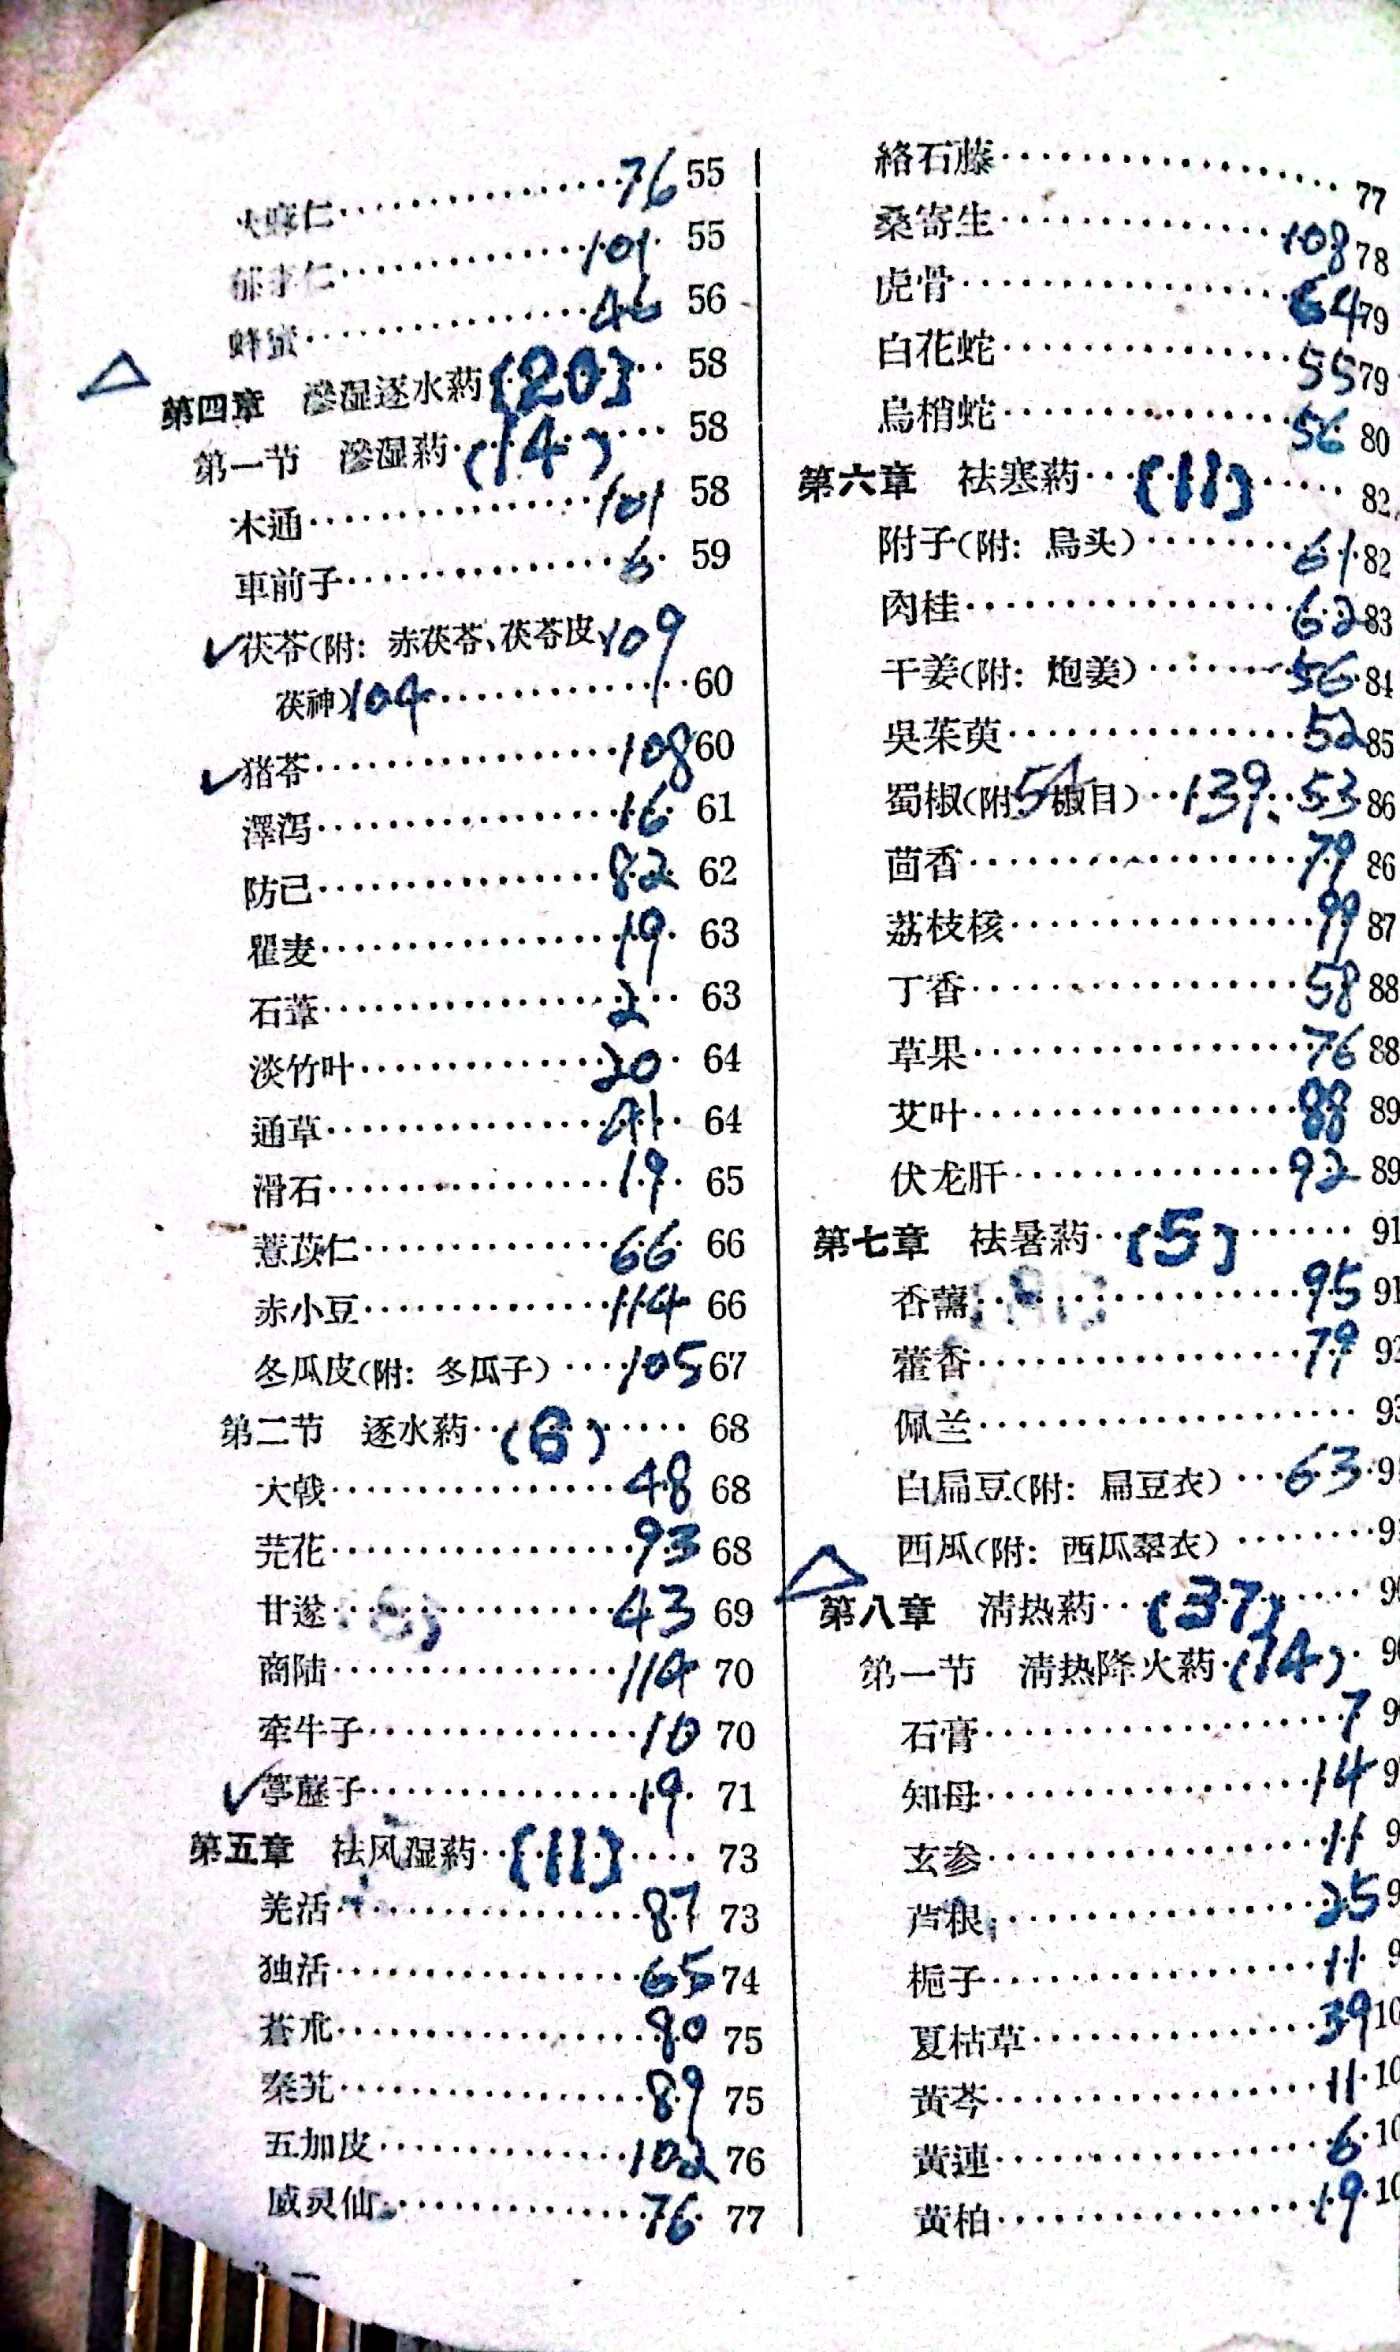 火麻仁……………76 55
郁李仁……………101 55
蜂蜜……………46 56
第四章 滲湿逐水葯〔20〕…58
第一节 滲湿葯…(14)…58
木通……………101 58
車前子……………6 59
茯苓(附: 赤茯苓、茯苓皮、109
茯神)104……………60
猪苓……………108 60
澤泻……………16 61
防己……………82 62
瞿麦……………19 63
石葦……………2 63
淡竹叶……………20 64
通草……………41 64
滑石……………19 65
薏苡仁……………66 66
赤小豆……………114 66
冬瓜皮(附: 冬瓜子)……105 67
第二节 逐水葯…(6)…68
大戟……………48 68
芫花……………93 68
甘遂……………43 69
商陆……………114 70
牵牛子……………10 70
葶藶子……………19 71
第五章 祛风湿葯…〔11〕…73
羌活……………87 73
独活……………65 74
蒼朮……………80 75
秦艽……………89 75
五加皮……………102 76
威灵仙……………76 77
絡石藤……………77
桑寄生……………108 78
虎骨……………64 79
白花蛇……………55 79
烏梢蛇……………56 80
第六章 祛寒葯…〔11〕…82
附子(附: 烏头)……61 82
肉桂……………62 83
干姜(附: 炮姜)……56 84
吳茱萸……………52 85
蜀椒(附: 54 椒目)…139、53 86
茴香……………79 86
荔枝核……………99 87
丁香……………58 88
草果……………76 88
艾叶……………88 89
伏龙肝……………92 89
第七章 祛暑葯…〔5〕…91
香薷……………95 91
藿香……………79 9
佩兰……………93
白扁豆(附: 扁豆衣)…63 9
西瓜(附: 西瓜翠衣)……9
第八章 清热葯…〔37〕…9
第一节 清热降火葯(14)…9
石膏……………7 9
知母……………14 9
玄参……………11 9
芦根……………25 9
梔子……………11 9
夏枯草……………39 10
黄芩……………11 10
黄連……………6 10
黄柏……………19 10